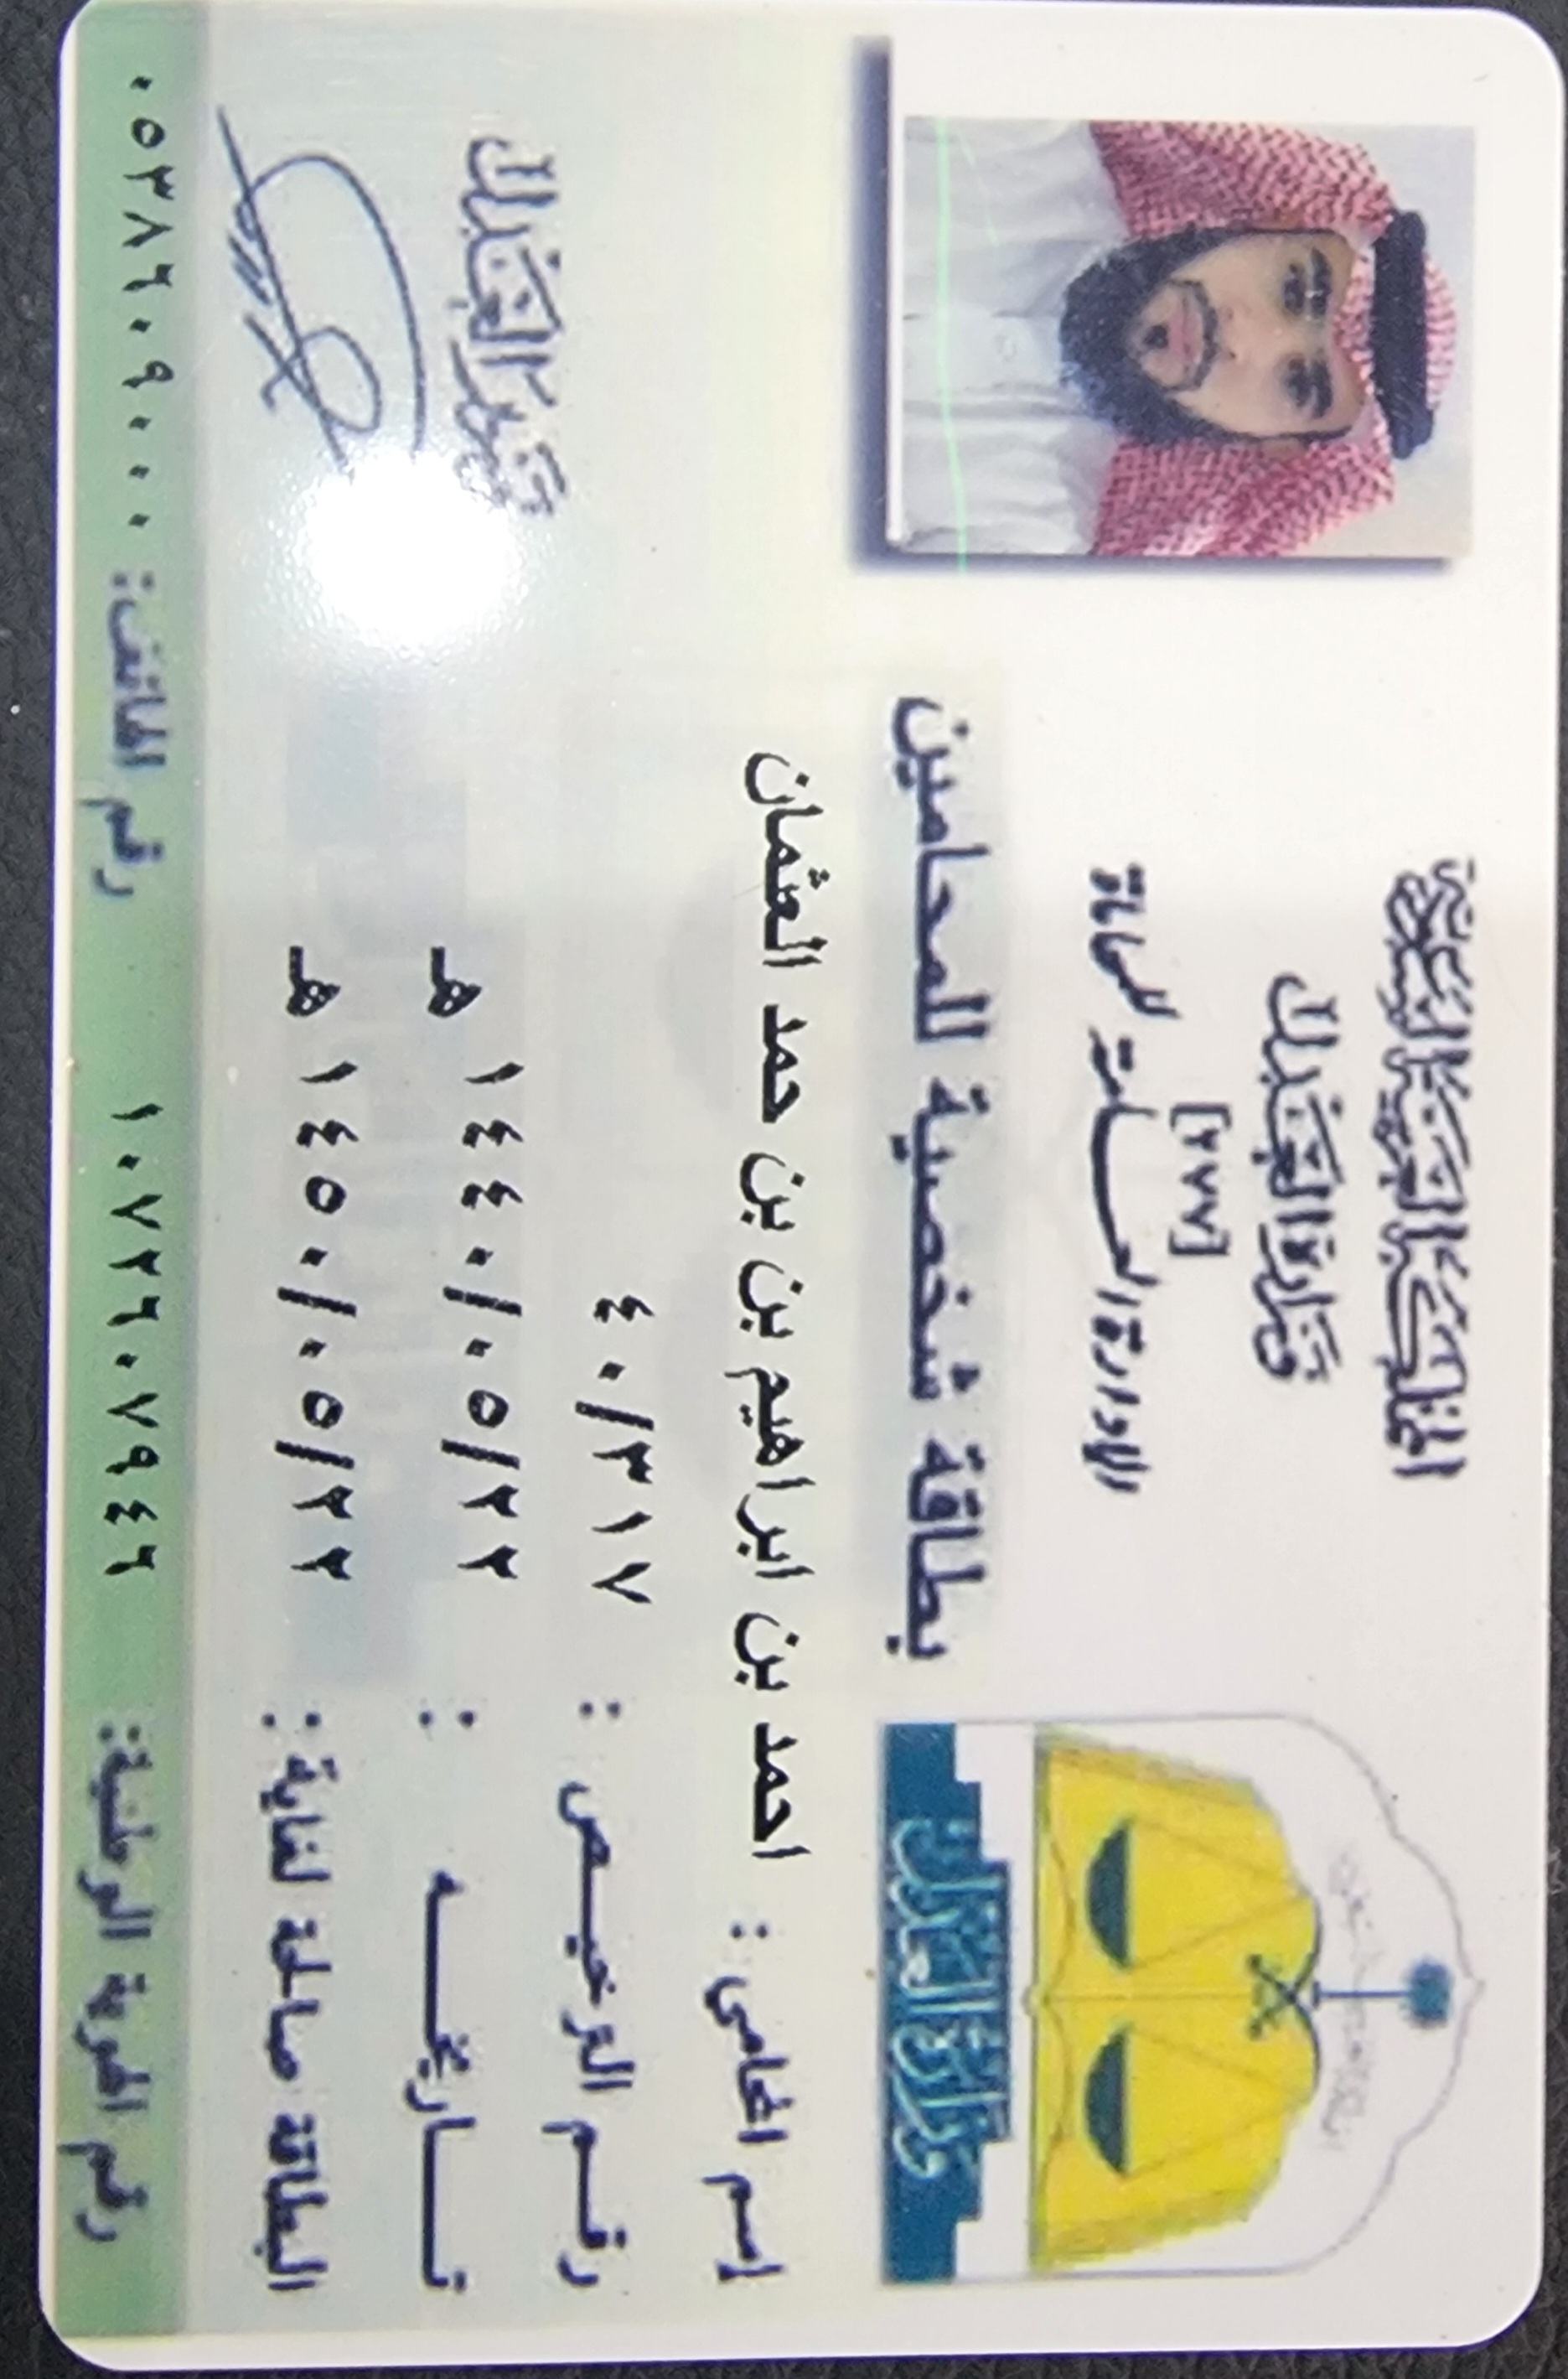 المملكة العربية السعودية
وزارة العدل
[٢٧٧]
الإدارة العامة للمحاماة
وزارة العدل
بطاقة شخصية للمحامين
إسم المحامي : احمد بن ابراهيم بن بن حمد العثمان
رقم الترخيص : ٤٠/٣١٧
تاريخه : ١٤٤٠/٠٥/٢٢ هـ
البطاقة صالحة لغاية : ١٤٥٠/٠٥/٢٢ هـ
وزارة العدل
رقم الهوية الوطنية: ١٠٧٢٦٠٧٩٤٦ رقم الهاتف: ٠٥٣٨٦٠٩٠٠٠